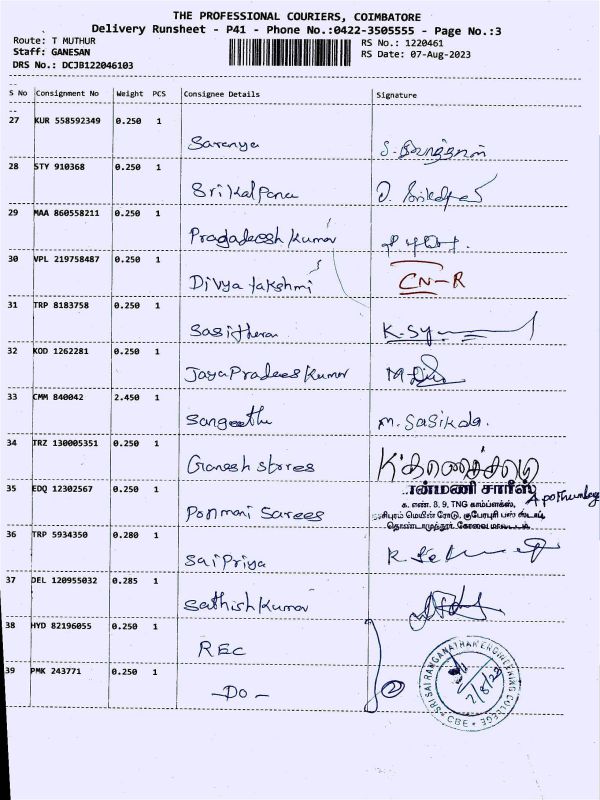 THE PROFESSIONAL COURIERS, COIMBATORE
Delivery Runsheet - P41 - Phone No.:0422-3505555 - Page No.:3
Route: T MUTHUR
RS No.: 1220461
Staff: GANESAN
RS Date: 07-Aug-2023
DRS No.: DCJB122046103
S No Consignment No Weight PCS Consignee Details Signature
27 KUR 558592349 0.250 1
Saranya
28 STY 910368 0.250 1
Srikalpana
29 MAA 860558211 0.250 1
Pragadeesh Kumar
30 VPL 219758487 0.250 1
Divya lakshmi CN-R
31 TRP 8183758 0.250 1
Sasitharan
32 KOD 1262281 0.250 1
JayaPradees Kumar
33 CMM 840042 2.450 1
Sangeetha M. Sasikala.
34 TRZ 130005351 0.250 1
Ganesh stores
35 EDQ 12302567 0.250 1
Ponmani Sarees
பொன்மணி சாரீஸ்
க. எண். 8, 9, TNG காம்ப்ளக்ஸ்,
மெயின் ரோடு, குபேரபுரி பஸ் ஸ்டாப்,
தொண்டாமுத்தூர், கோவை மாவட்டம்.
36 TRP 5934350 0.280 1
Sai Priya
37 DEL 120955032 0.285 1
Sathish Kumar
38 HYD 82196055 0.250 1
REC
39 PMK 243771 0.250 1
-Do- 2
SRI SAI RANGANATHAR ENGINEERING COLLEGE
CBE
7/8/23